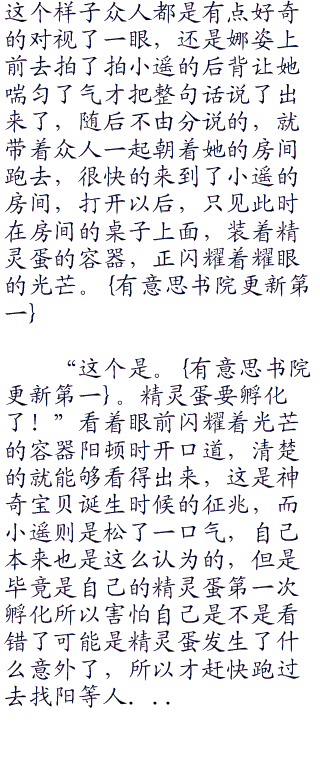 这个样子众人都是有点好奇
的对视了一眼，还是娜姿上
前去拍了拍小遥的后背让她
喘匀了气才把整句话说了出
来了，随后不由分说的，就
带着众人一起朝着她的房间
跑去，很快的来到了小遥的
房间，打开以后，只见此时
在房间的桌子上面，装着精
灵蛋的容器，正闪耀着耀眼
的光芒。{有意思书院更新第
一}
“这个是。{有意思书院
更新第一}。精灵蛋要孵化
了！”看着眼前闪耀着光芒
的容器阳顿时开口道，清楚
的就能够看得出来，这是神
奇宝贝诞生时候的征兆，而
小遥则是松了一口气，自己
本来也是这么认为的，但是
毕竟是自己的精灵蛋第一次
孵化所以害怕自己是不是看
错了可能是精灵蛋发生了什
么意外了，所以才赶快跑过
去找阳等人．．．